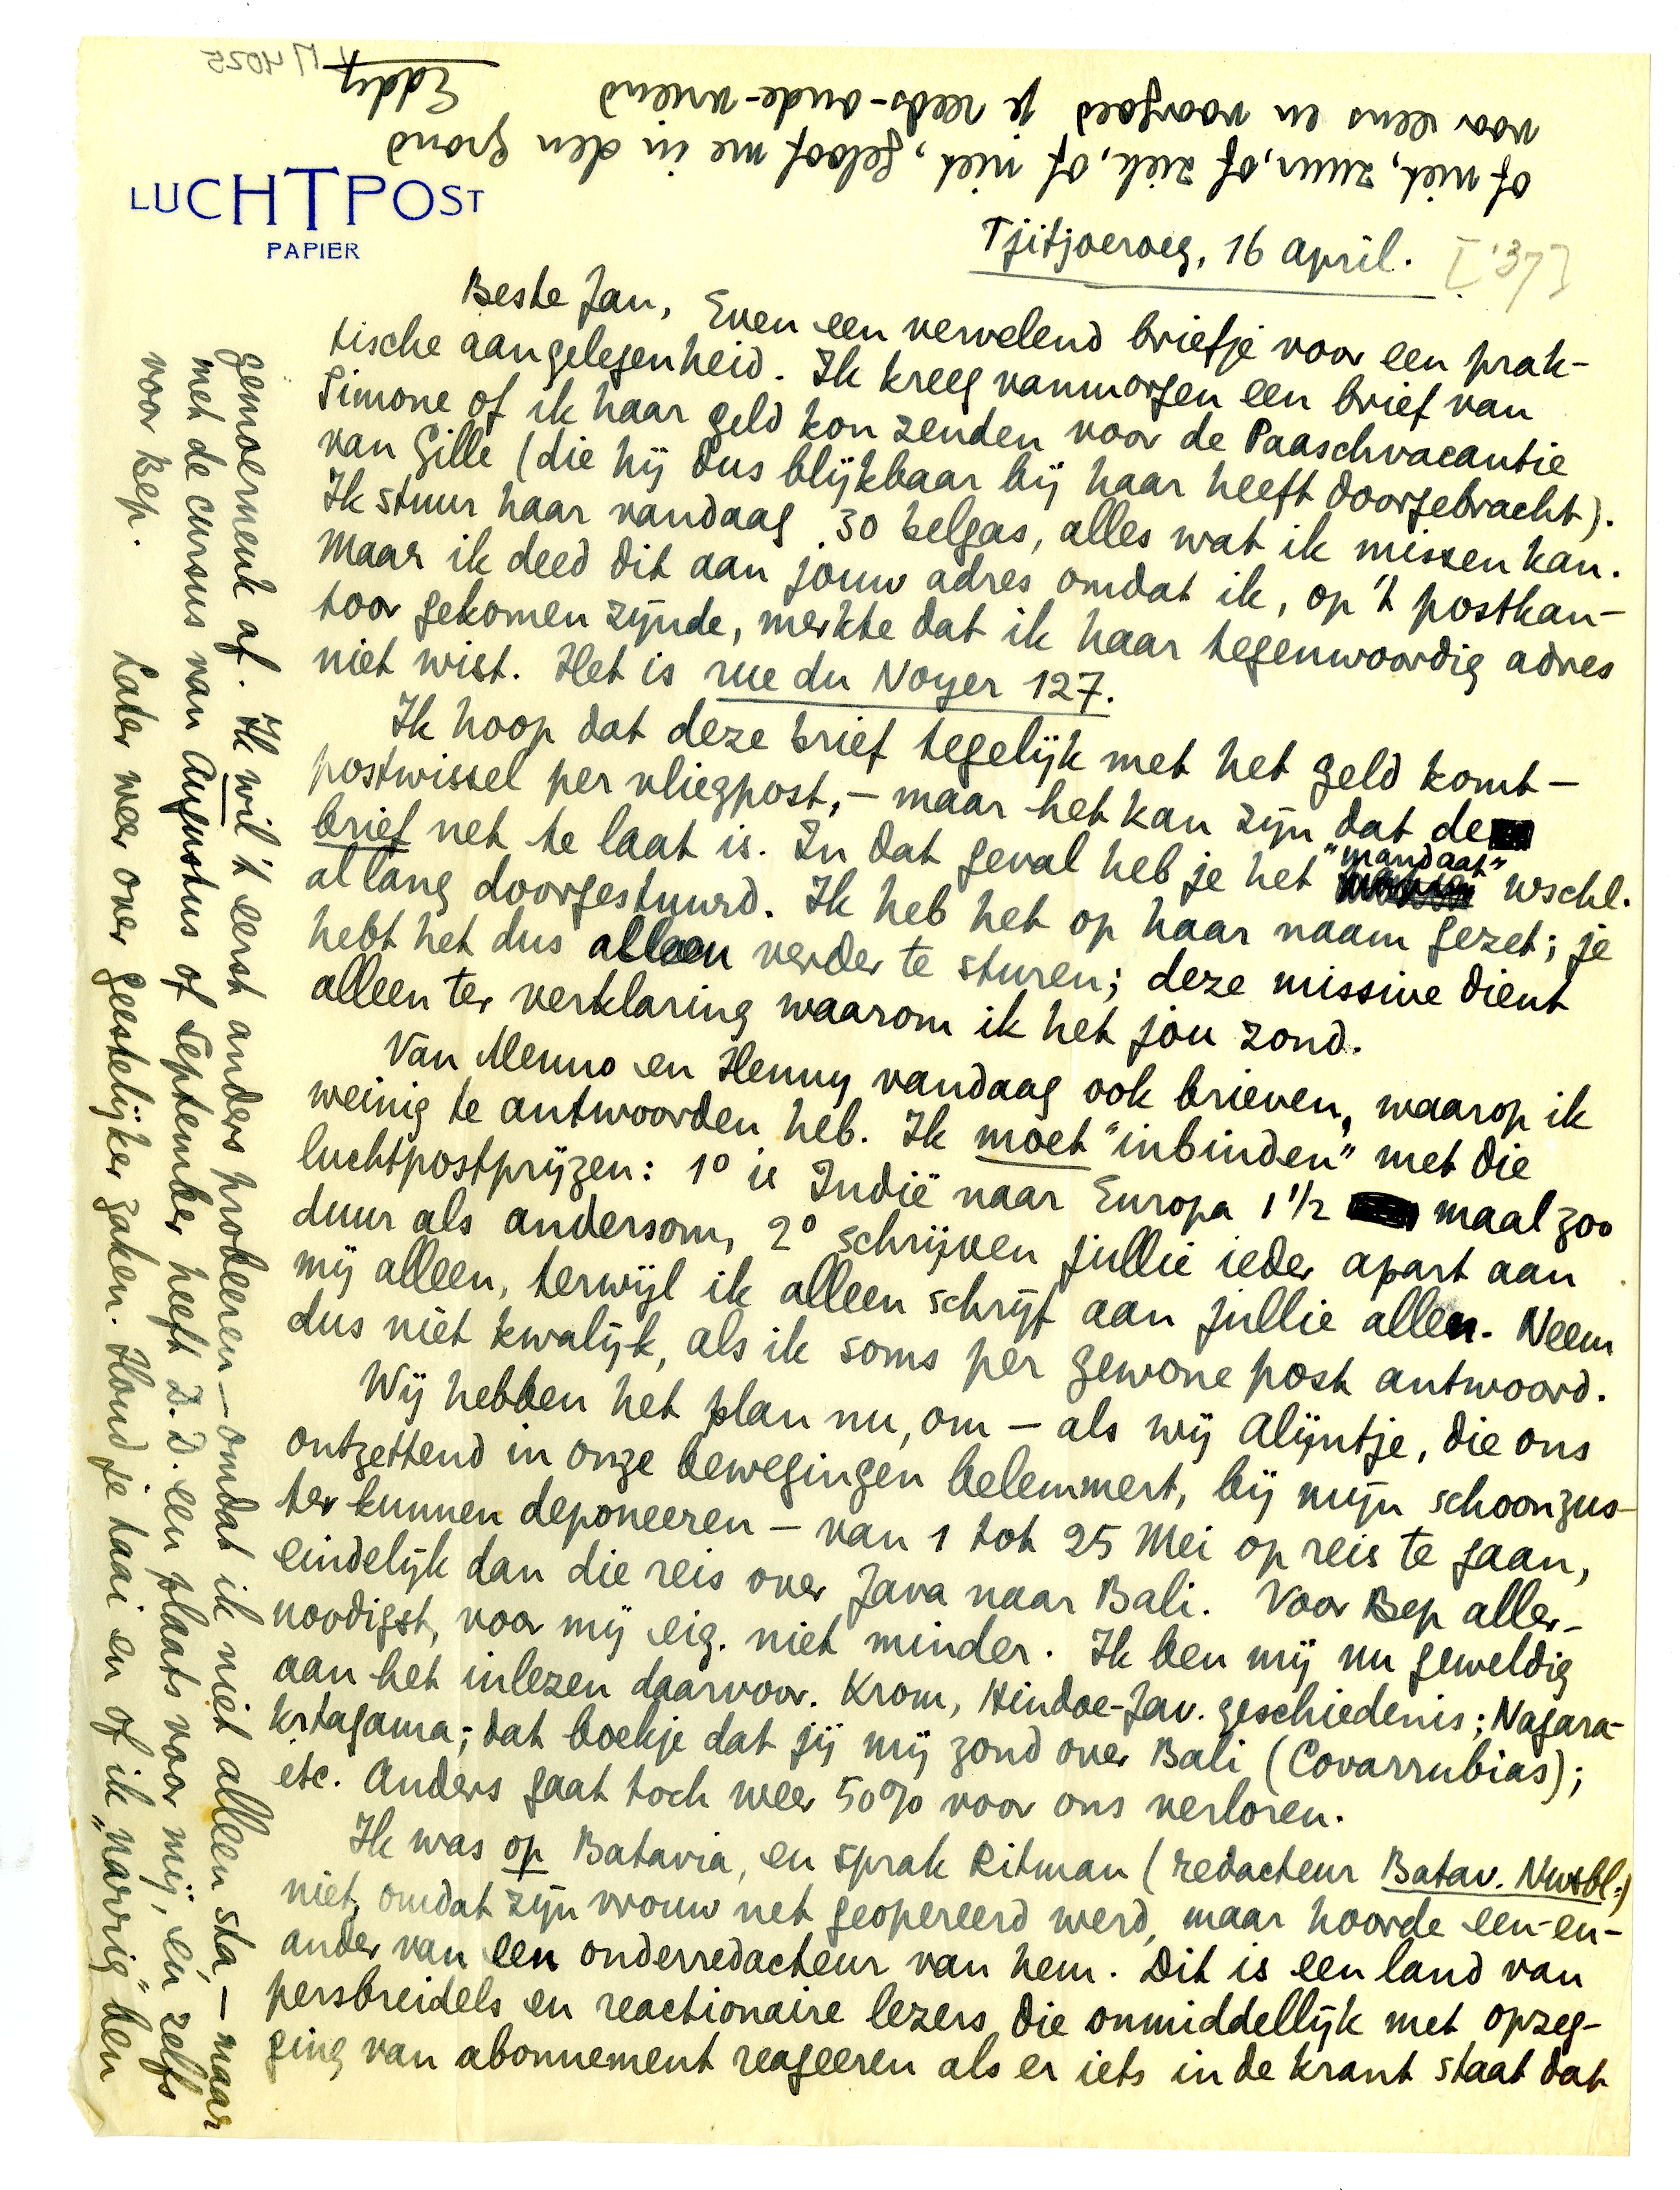 LUCHTPOST
PAPIER
Tjitjoeroeg, 16 april. ['37]
Beste Jan, Even een vervelend briefje voor een prak-
tische aangelegenheid. Ik kreeg vanmorgen een brief van
Simone of ik haar geld kon zenden voor de Paaschvacantie
van Gille (die hij dus blijkbaar bij haar heeft doorgebracht).
Ik stuur haar vandaag 30 belgas, alles wat ik missen kan.
Maar ik deed dit aan jouw adres omdat ik, op 't postkan-
toor gekomen zijnde, merkte dat ik haar tegenwoordig adres
niet wist. Het is rue du Noyer 127.
Ik hoop dat deze brief tegelijk met het geld komt -
postwissel per vliegpost, - maar het kan zijn dat de
brief net te laat is. In dat geval heb je het "mandaat" wschl.
al lang doorgestuurd. Ik heb het op haar naam gezet; je
hebt het dus alleen verder te sturen; deze missive dient
alleen ter verklaring waarom ik het jou zond.
Van Menno en Henny vandaag ook brieven, waarop ik
weinig te antwoorden heb. Ik moet "inbinden" met die
luchtpostprijzen: 1° is Indië naar Europa 1 1/2 maal zoo
duur als andersom, 2° schrijven jullie ieder apart aan
mij alleen, terwijl ik alleen schrijf aan jullie allen. Neem
dus niet kwalijk, als ik soms per gewone post antwoord.
Wij hebben het plan nu, om - als wij Alijntje, die ons
ontzettend in onze bewegingen belemmert, bij mijn schoonzus-
ter kunnen deponeeren - van 1 tot 25 Mei op reis te gaan,
eindelijk dan die reis over Java naar Bali. Voor Bep aller-
noodigst, voor mij eig. niet minder. Ik ben mij nu geweldig
aan het inlezen daarvoor. Krom, Hindoe-Jav. geschiedenis; Nagara-
krtagama; dat boekje dat jij mij zond over Bali (Covarrubias);
etc. Anders gaat toch weer 50% voor ons verloren.
Ik was op Batavia, en sprak Ritman (redacteur Batav. Nwsbl.)
niet, omdat zijn vrouw net geopereerd werd, maar hoorde een-en-
ander van een onderredacteur van hem. Dit is een land van
persbreidels en reactionaire lezers die onmiddellijk met opzeg-
ging van abonnement reageeren als er iets in de krant staat dat
gemoerment af. Ik wil 't eerst anders probeeren - omdat ik niet alleen sta, - maar
met de cursus van Augustus of September heeft D.D. een plaats voor mij, en zelfs
voor Bep. Later weer over geestelijker zaken. Houd je taai en of ik "narrig" ben
of niet, zuur, of ziek, of niet, geloof me in den grond
voor eens en voorgoed je reeds-oude-vriend
Eddy
M 4025